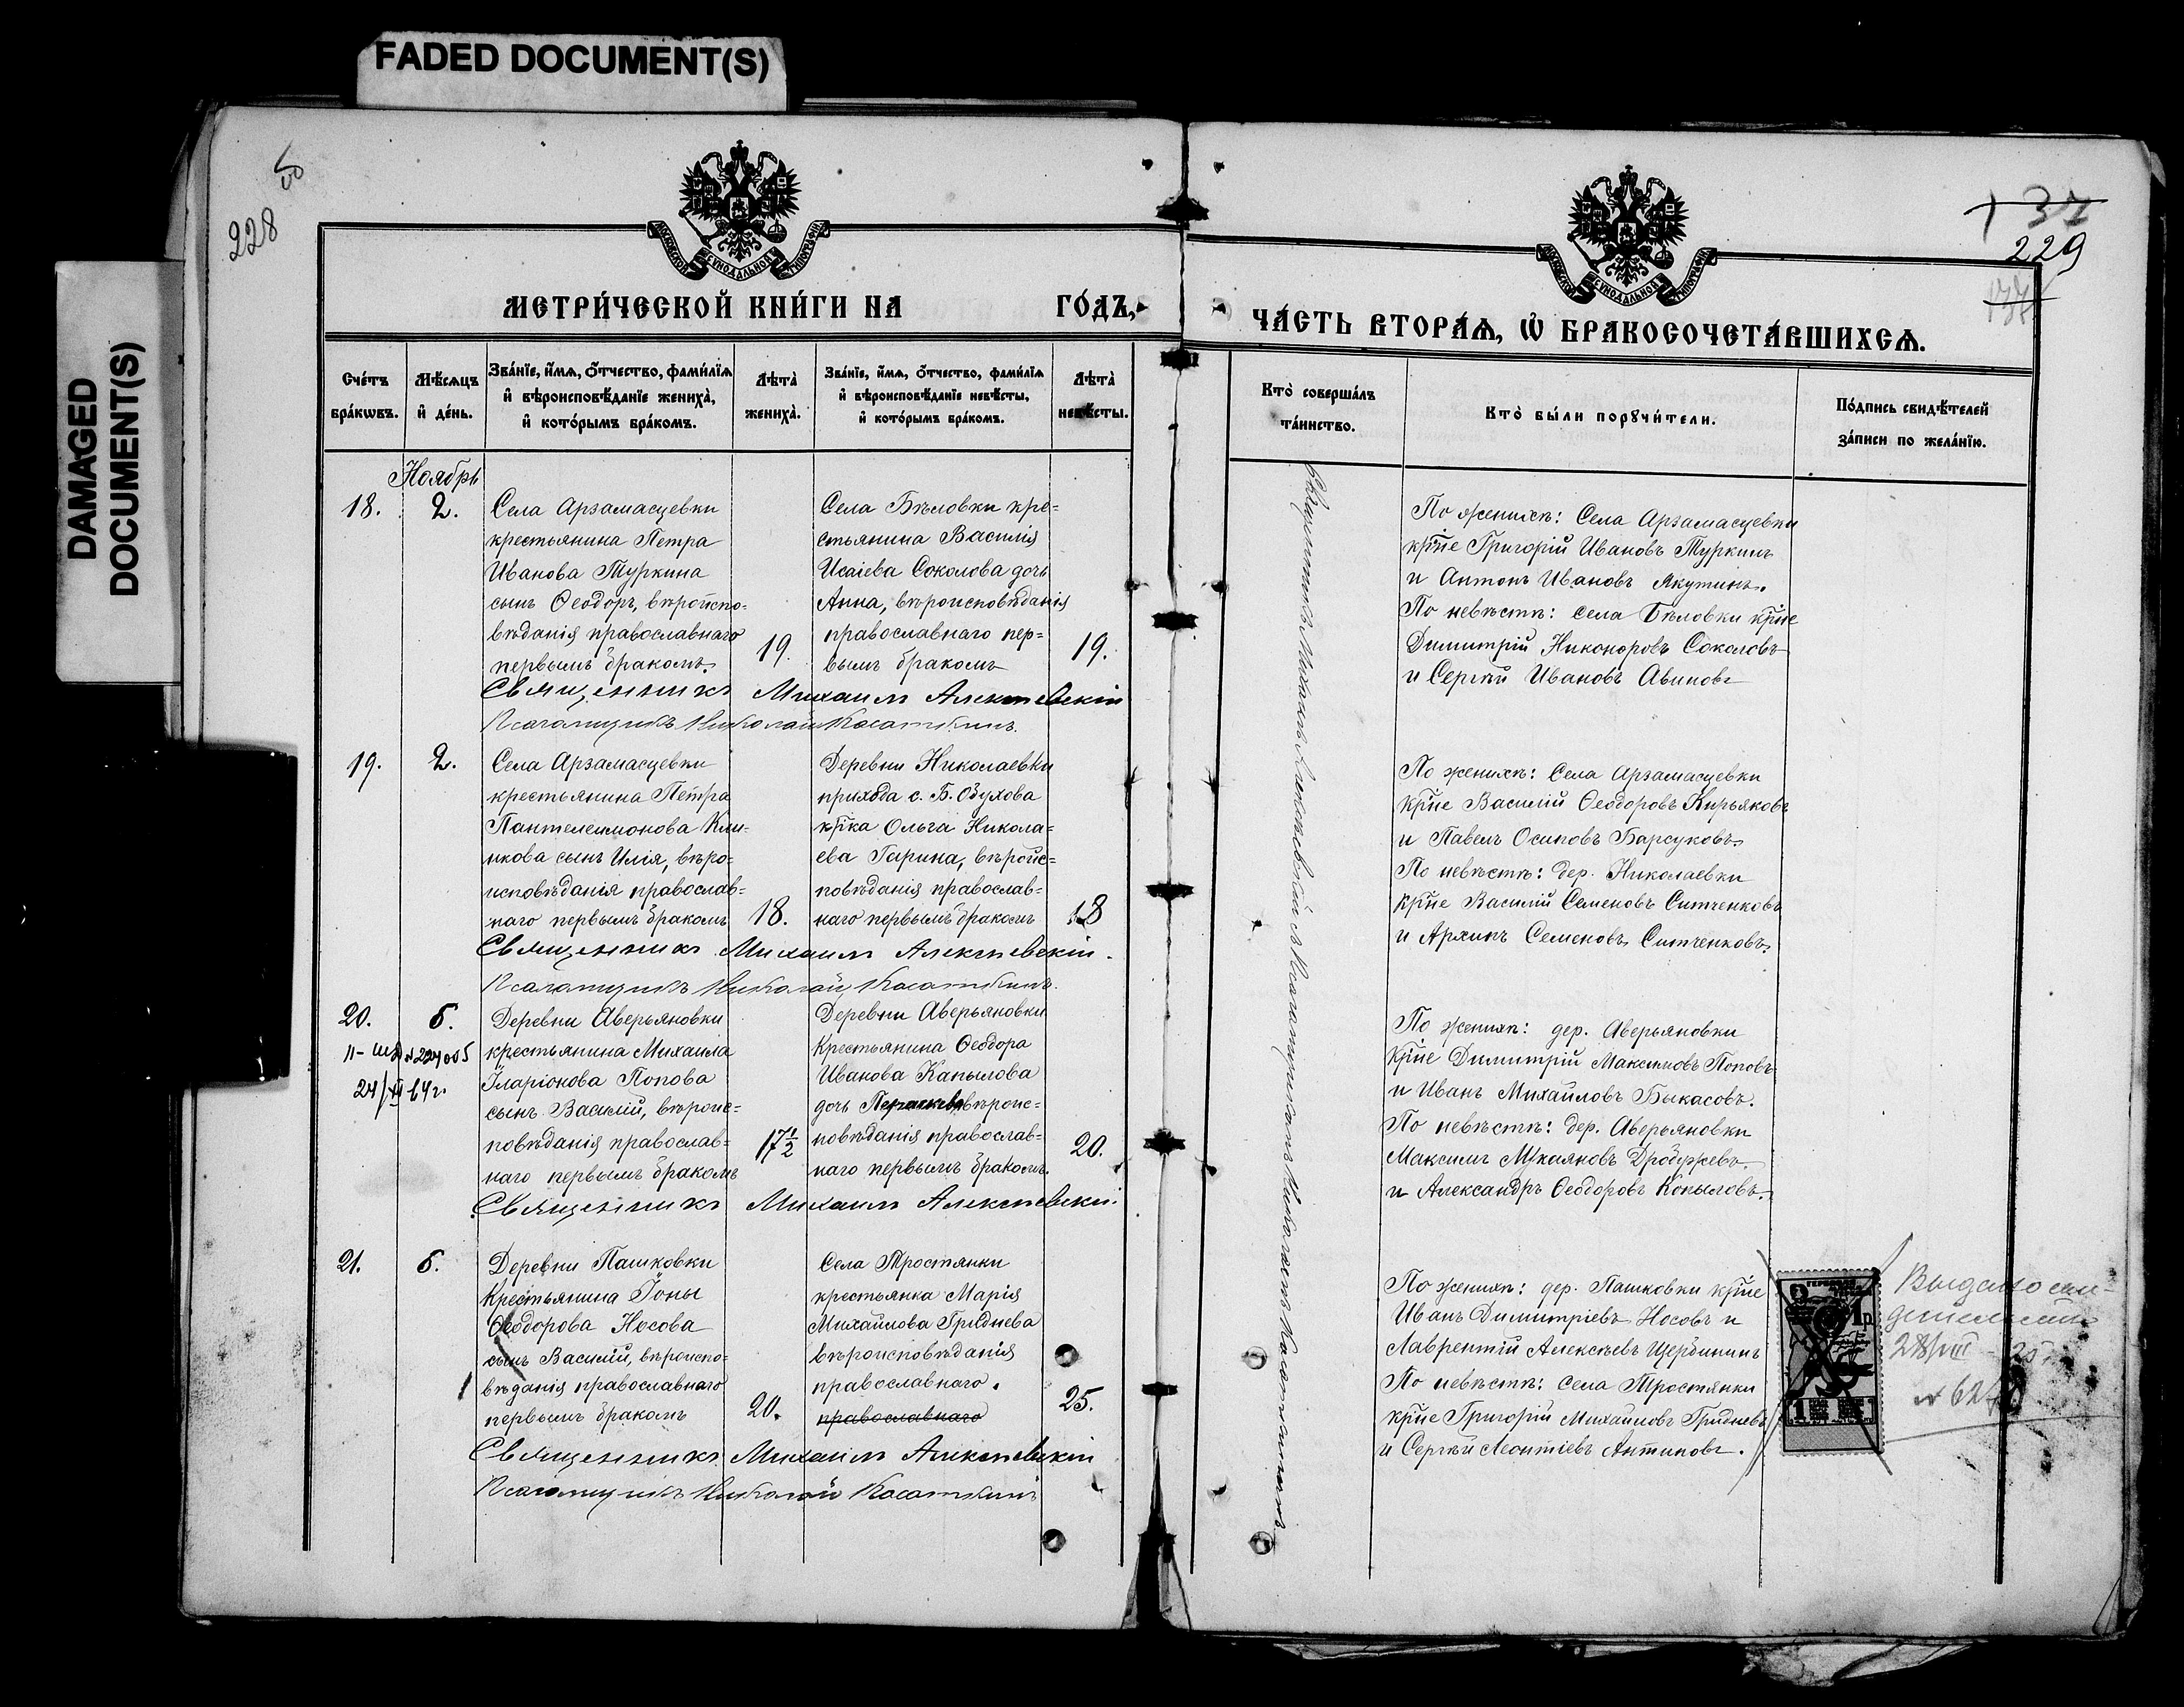 FADED DOCUMENT(S)
DAMAGED
DOCUMENT(S)
228
МЕТРИ́ЧЕСКОЙ КНИ́ГИ НА ГО́ДЪ,
Сче́тъ
бра́кѡвъ.
Мѣ́сѧцъ
и҆ де́нь.
Зва́нїе, и҆́мѧ, ѻ҆́тчество, фами́лїѧ
и҆ вѣроисповѣ́данїе жениха̀,
и҆ кото́рымъ бра́комъ.
Лѣта̀
жениха̀.
Зва́нїе, и҆́мѧ, ѻ҆́тчество, фами́лїѧ
и҆ вѣроисповѣ́данїе невѣ́сты,
и҆ кото́рымъ бра́комъ.
Лѣта̀
невѣ́сты.
Ноябрь
18.
2.
Села Арзамасцевки
крестьянина Петра
Иванова Туркина
сынъ Ѳеодоръ, вѣроиспо-
вѣданія православнаго
первымъ бракомъ.
19.
Села Бѣловки кре-
стьянина Василія
Исаіева Соколова дочь
Анна, вѣроисповѣданія
православнаго пер-
вымъ бракомъ
19.
Священникъ Михаилъ Алексѣевскій
Псаломщикъ Николай Касаткинъ.
19.
2.
Села Арзамасцевки
крестьянина Петра
Пантелеимонова Кли-
нкова сынъ Илія, вѣро-
исповѣданія православ-
наго первымъ бракомъ
18.
Деревни Николаевки
прихода с. Б. Озухова
кр̃ка Ольга Никола-
ева Гарина, вѣроис-
повѣданія православ-
наго первымъ бракомъ
18
Священникъ Михаилъ Алексѣевскій.
Псаломщикъ Николай Касаткинъ.
20.
6.
24/XII 64г.
Деревни Аверьяновки
крестьянина Михаила
Иларіонова Попова
сынъ Василій, вѣроис-
повѣданія православ-
наго первымъ бракомъ
17½
Деревни Аверьяновки
Крестьянина Ѳеодора
Иванова Капылова
дочь Параскева вѣроис-
повѣданія православ-
наго первымъ бракомъ.
20.
Священникъ Михаилъ Алексѣевскій
21.
6.
Деревни Пашковки
Крестьянина Іоны
Ѳеодорова Носова
сынъ Василій, вѣроиспо-
вѣданія православнаго
первымъ бракомъ
20.
Села Тростянки
крестьянка Марія
Михайлова Гриднева
вѣроисповѣданія
православнаго.
православнаго
25.
Священникъ Михаилъ Алексѣевскій
Псаломщикъ Николай Касаткинъ
229
ЧА́СТЬ ВТОРА́Ѧ, Ѡ҆ БРАКОСОЧЕТА́ВШИХСѦ.
Кто̀ соверша́лъ
та́инство.
Кто̀ бы́ли порꙋчи́тели.
По́дпись свидѣ́телей
за́писи по жела́нїю.
Священникъ Михаилъ Алексѣевскій съ Псаломщикомъ Николаемъ Касаткинымъ
По женихѣ: Села Арзамасцевки
кр̃не Григорій Ивановъ Туркинъ
и Антонъ Ивановъ Якутинъ.
По невѣстѣ: села Бѣловки кр̃не
Димитрій Никоноровъ Соколовъ
и Сергѣй Ивановъ Авиновъ
По женихѣ: Села Арзамасцевки
кр̃не Василій Ѳеодоровъ Кирьяковъ
и Павелъ Осиповъ Барсуковъ.
По невѣстѣ: дер. Николаевки
кр̃не Василій Семеновъ Ситченковъ
и Архипъ Семеновъ Ситченковъ.
По женихѣ: дер. Аверьяновки
кр̃не Димитрій Максимовъ Поповъ
и Иванъ Михайловъ Быкасовъ.
По невѣстѣ: дер. Аверьяновки
Максимъ
и Александръ Ѳеодоровъ Копыловъ.
По женихѣ: дер. Пашковки кр̃не
Иванъ Димитріевъ Носовъ и
Лаврентій Алексѣевъ Щербининъ
По невѣстѣ: Села Тростянки
кр̃не Григорій Михайловъ Гридневъ
и Сергѣй Леонтіевъ Антиповъ.
1р
Выдано сви-
детельство
28/VIII - 25